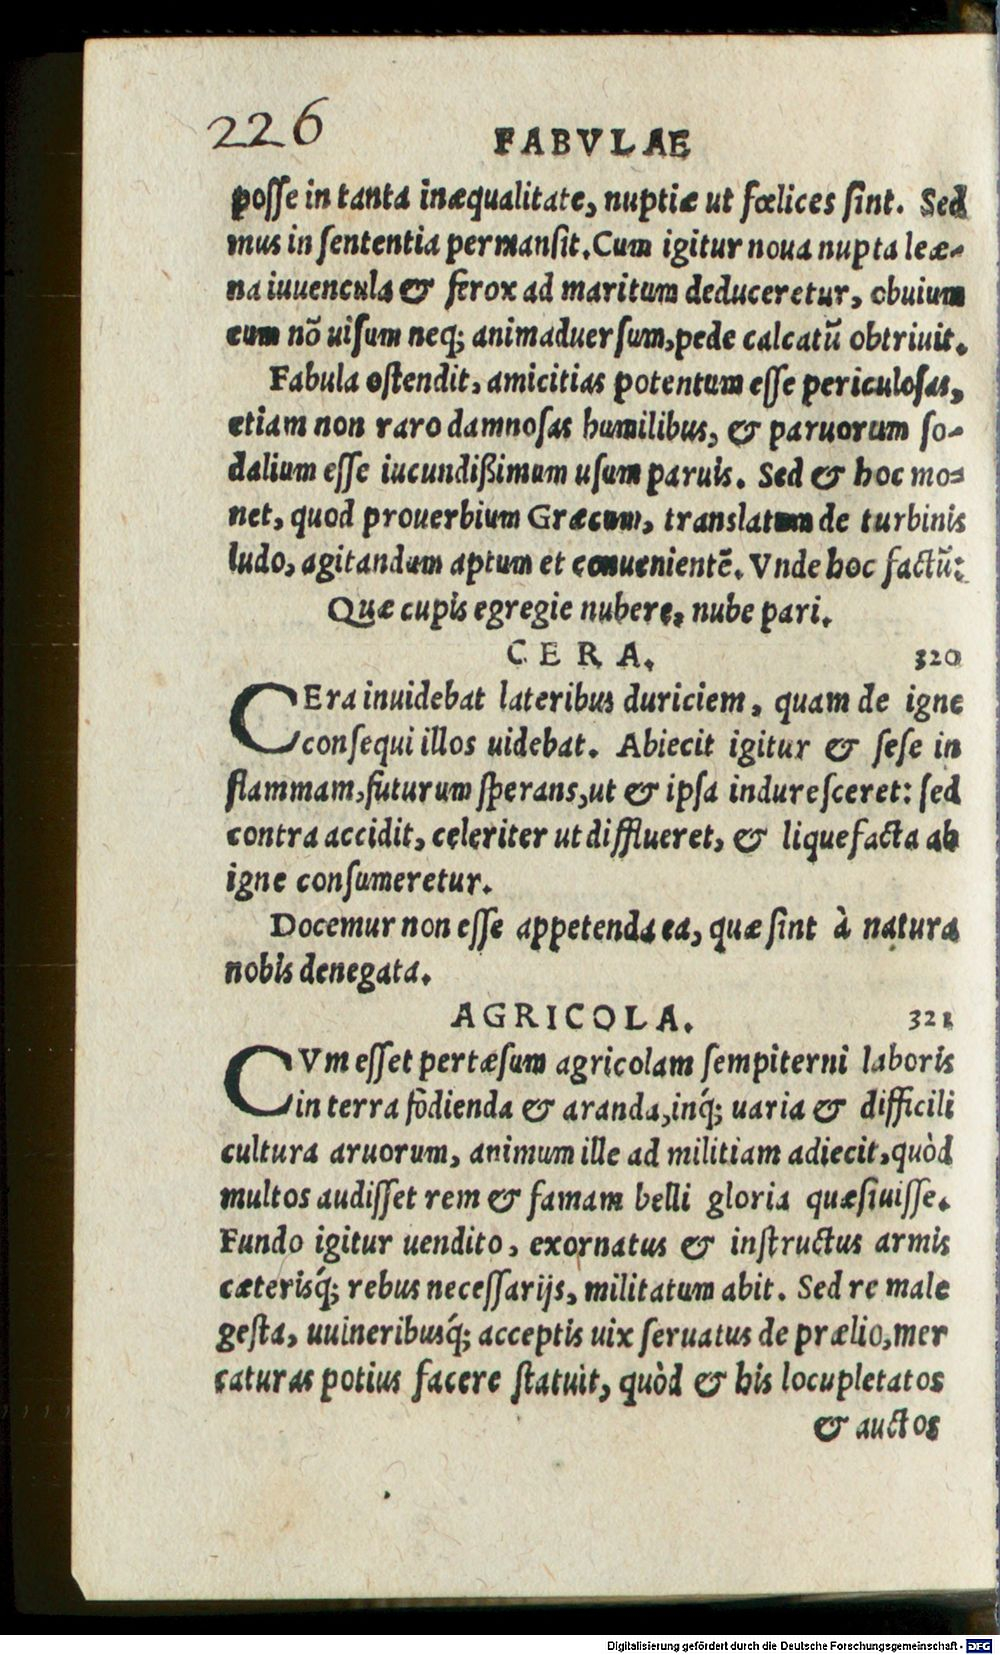 226
FABVLAE
posse in tanta inæqualitate, nuptiæ ut fœlices sint. Sed
mus in sententia permansit. Cum igitur noua nupta leæ-
na iuuencula & ferox ad maritum deduceretur, obuium
eum nõ uisum neq; animaduersum, pede calcatũ obtriuit.
Fabula ostendit, amicitias potentum esse periculosas,
etiam non raro damnosas humilibus, & paruorum so-
dalium esse iucundißimum usum paruis. Sed & hoc mo-
net, quod prouerbium Græcum, translatum de turbinis
ludo, agitandum aptum et conuenientẽ. Vnde hoc factũ:
Quæ cupis egregie nubere, nube pari.
CERA. 320
CEra inuidebat lateribus duriciem, quam de igne
consequi illos uidebat. Abiecit igitur & sese in
flammam, futurum sperans, ut & ipsa induresceret: sed
contra accidit, celeriter ut difflueret, & liquefacta ab
igne consumeretur.
Docemur non esse appetenda ea, quæ sint à natura
nobis denegata.
AGRICOLA. 321
CVm esset pertæsum agricolam sempiterni laboris
in terra fodienda & aranda, inq́; uaria & difficili
cultura aruorum, animum ille ad militiam adiecit, quòd
multos audisset rem & famam belli gloria quæsiuisse.
Fundo igitur uendito, exornatus & instructus armis
cæterisq́; rebus necessarijs, militatum abit. Sed re male
gesta, uulneribusq́; acceptis uix seruatus de prælio, mer
caturas potius facere statuit, quòd & his locupletatos
& auctos
Digitalisierung gefördert durch die Deutsche Forschungsgemeinschaft - DFG